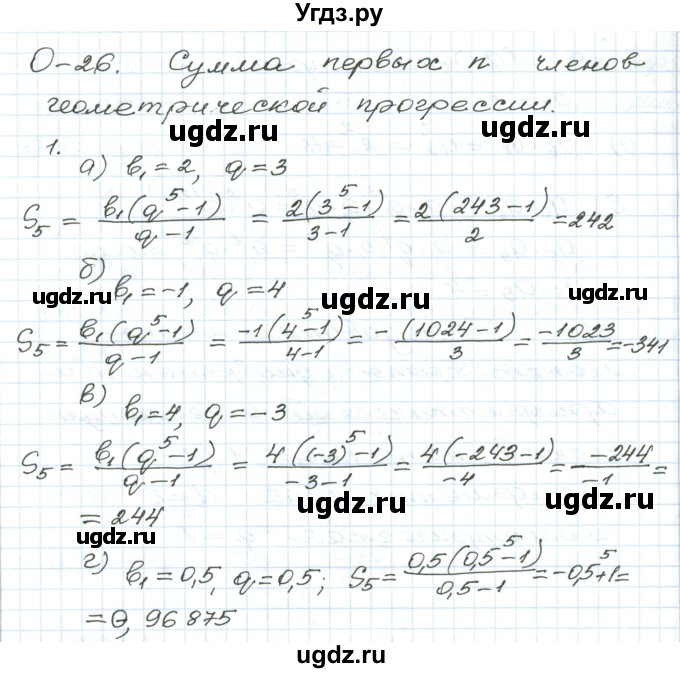 Угдз.ру
О-26. Сумма первых n членов
геометрической прогрессии.
ugdz.ru ugdz.ru
1.
а) b₁ = 2, q = 3
S₅ = b₁(q⁵-1)/(q-1) = 2(3⁵-1)/(3-1) = 2(243-1)/2 = 242
б)
b₁ = -1, q = 4
ugdz.ru ugdz.ru ugdz.ru
S₅ = b₁(q⁵-1)/(q-1) = -1(4⁵-1)/(4-1) = -(1024-1)/3 = -1023/3 = -341
в)
b₁ = 4, q = -3
ugdz.ru ugdz.ru
S₅ = b₁(q⁵-1)/(q-1) = 4((-3)⁵-1)/(-3-1) = 4(-243-1)/-4 = -244/-1 =
= 244
ugdz.ru ugdz.ru ugdz.ru
г) b₁ = 0,5, q = 0,5; S₅ = 0,5(0,5⁵-1)/(0,5-1) = -0,5⁵+1 =
= 0,96875
ugdz.ru ugdz.ru
ugdz.ru